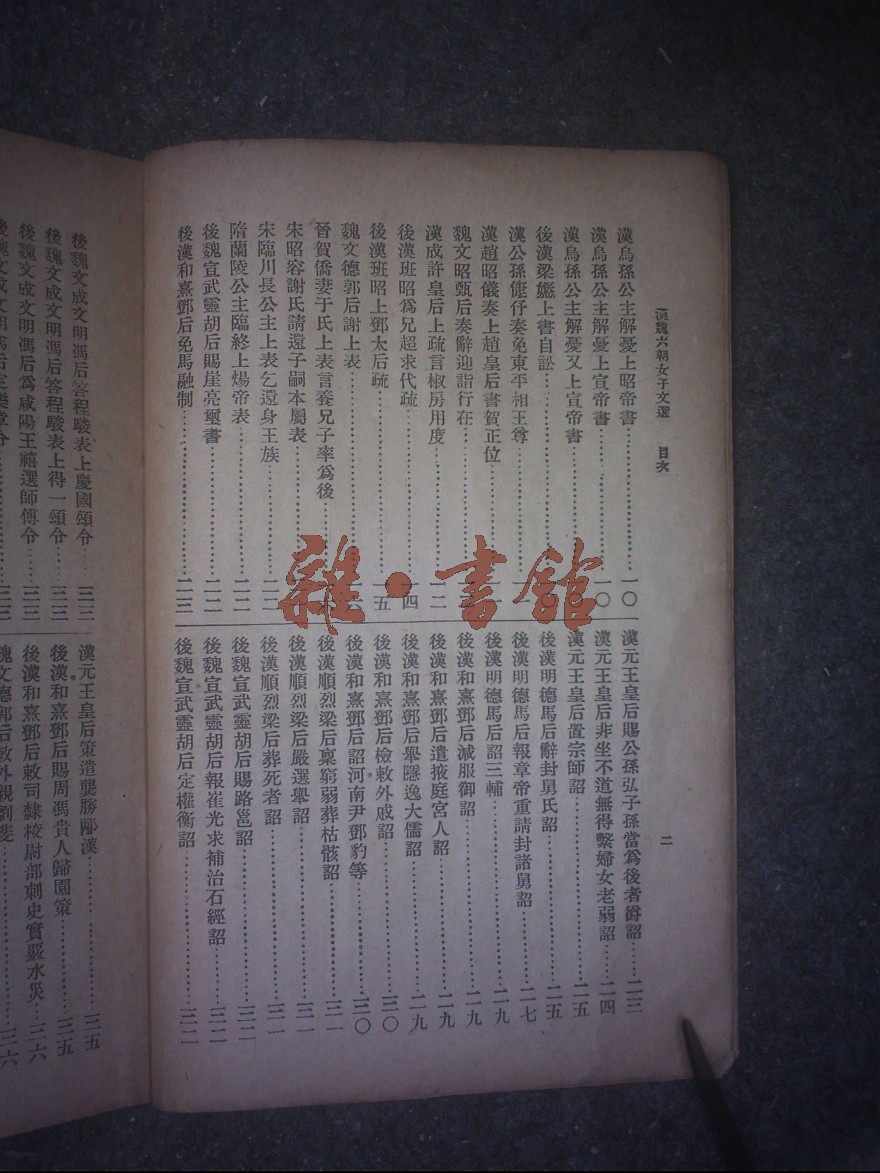 漢魏六朝女子文選 目次 二
漢烏孫公主解憂上昭帝書……一〇
漢烏孫公主解憂上宣帝書……一〇
漢烏孫公主解憂又上宣帝書……
後漢梁嫕上書自訟……
漢公孫倢伃奏免東平相王尊……
漢趙昭儀奏上趙皇后書賀正位……
魏文昭甄后奏辭迎詣行在……
漢成許皇后上疏言椒房用度……一二
後漢班昭爲兄超求代疏……一四
後漢班昭上鄧太后疏……一五
魏文德郭后謝上表……
晉賀僑妻于氏上表言養兄子率爲後……
宋昭容謝氏請還子嗣本屬表……
宋臨川長公主上表乞還身王族……
隋蘭陵公主臨終上煬帝表……二二
後魏宣武靈胡后賜崖亮璽書……二二
後漢和熹鄧后免馬融制……二三
漢元王皇后賜公孫弘子孫當爲後者爵詔……二三
漢元王皇后非坐不道無得繫婦女老弱詔……二四
漢元王皇后置宗師詔……二五
後漢明德馬后辭封舅氏詔……二五
後漢明德馬后報章帝重請封諸舅詔……二七
後漢明德馬后詔三輔……二九
後漢和熹鄧后減服御詔……二九
後漢和熹鄧后遣掖庭宮人詔……二九
後漢和熹鄧后舉隱逸大儒詔……二九
後漢和熹鄧后檢敕外戚詔……三〇
後漢和熹鄧后詔河南尹鄧豹等……三〇
後漢順烈梁后稟窮弱葬枯骸詔……三一
後漢順烈梁后嚴選舉詔……三一
後漢順烈梁后葬死者詔……三一
後魏宣武靈胡后賜路邕詔……三二
後魏宣武靈胡后報崔光求補治石經詔……三二
後魏宣武靈胡后定權衡詔……三二
後魏文成文明馮后答程駿表上慶國頌令……三三
後魏文成文明馮后答程駿表上得一頌令……三三
後魏文成文明馮后爲咸陽王禧選師傅令……三三
後魏文成文明馮后定樂章令……三三
漢元王皇后策遣龔勝邴漢……三五
後漢和熹鄧后賜周馮貴人歸園策……三五
後漢和熹鄧后敕司隸校尉部刺史實覈水災……三六
魏文德郭后敕外親劉斐……三六
雜·書館